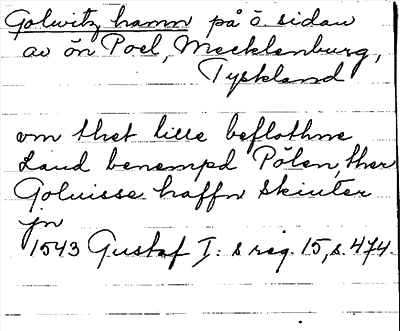 Golwitz hamn på ö. sidan
av ön Poel, Mecklenburg,
Tyskland
vm thet lille beflothne
Land benempd Pölen, ther
Goluisse haffn skiuter
jn
1543 Gustaf I:s reg. 15, s. 474.